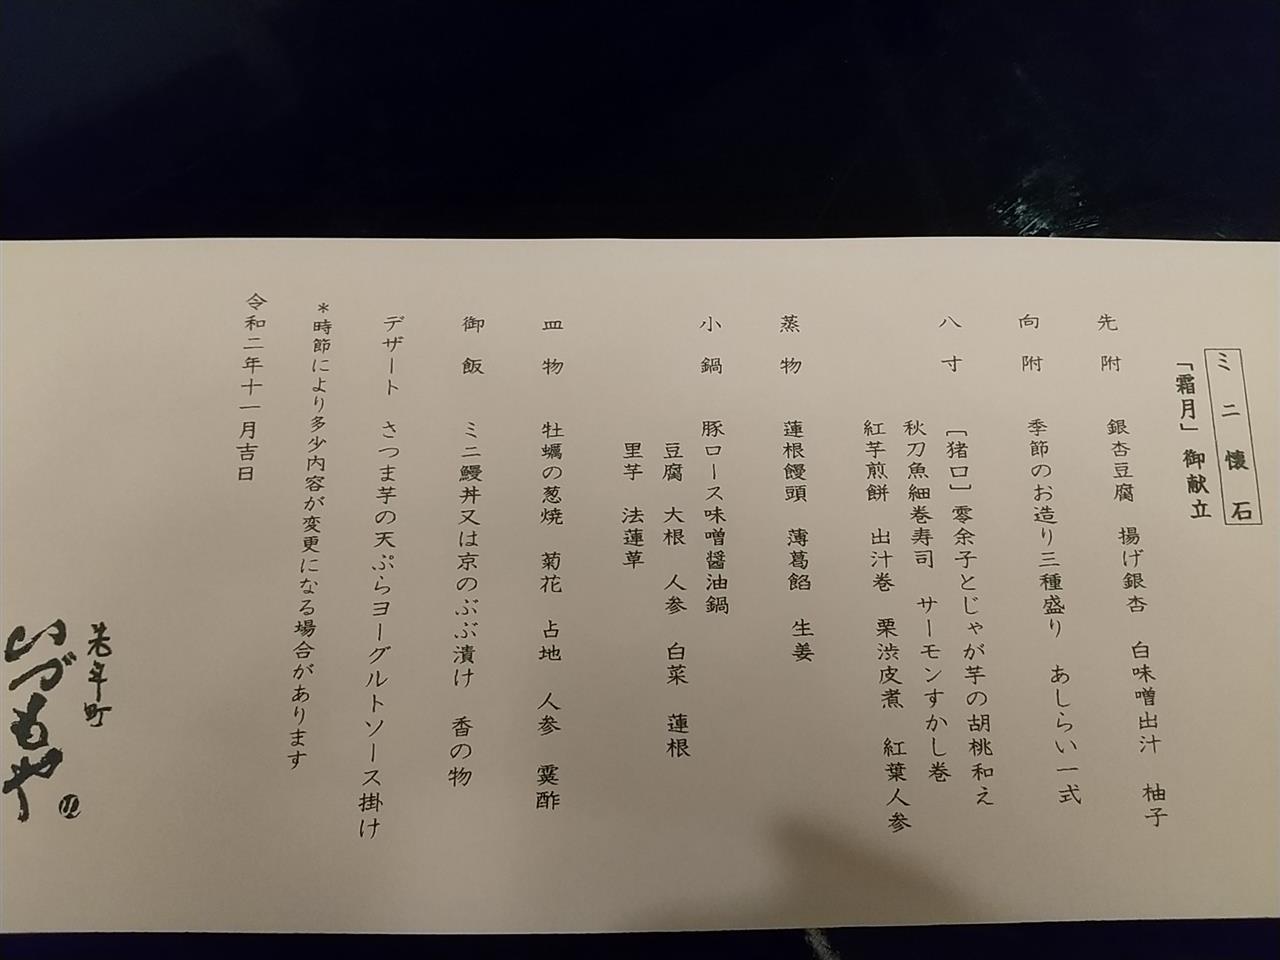 ミニ懐石
「霜月」御献立
先附 銀杏豆腐 揚げ銀杏 白味噌出汁 柚子
向附 季節のお造り三種盛り あしらい一式
八寸 [猪口]零余子とじゃが芋の胡桃和え
秋刀魚細巻寿司 サーモンすかし巻
紅芋煎餅 出汁巻 栗渋皮煮 紅葉人参
蒸物 蓮根饅頭 薄葛餡 生姜
小鍋 豚ロース味噌醤油鍋
豆腐 大根 人参 白菜 蓮根
里芋 法蓮草
皿物 牡蠣の葱焼 菊花 占地 人参 霙酢
御飯 ミニ鰻丼又は京のぶぶ漬け 香の物
デザート さつま芋の天ぷらヨーグルトソース掛け
*時節により多少内容が変更になる場合があります
令和二年十一月吉日
いづもや